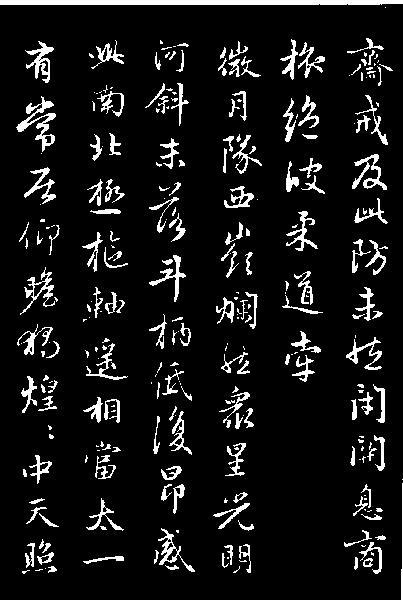 齋戒及此防未然閉關息商
旅絕彼柔道牽
微月隊西嶺爛然衆星光明
河斜未落斗柄低復昂感
此南北極樞軸遙相當太一
有常居仰瞻獨煌〻中天照